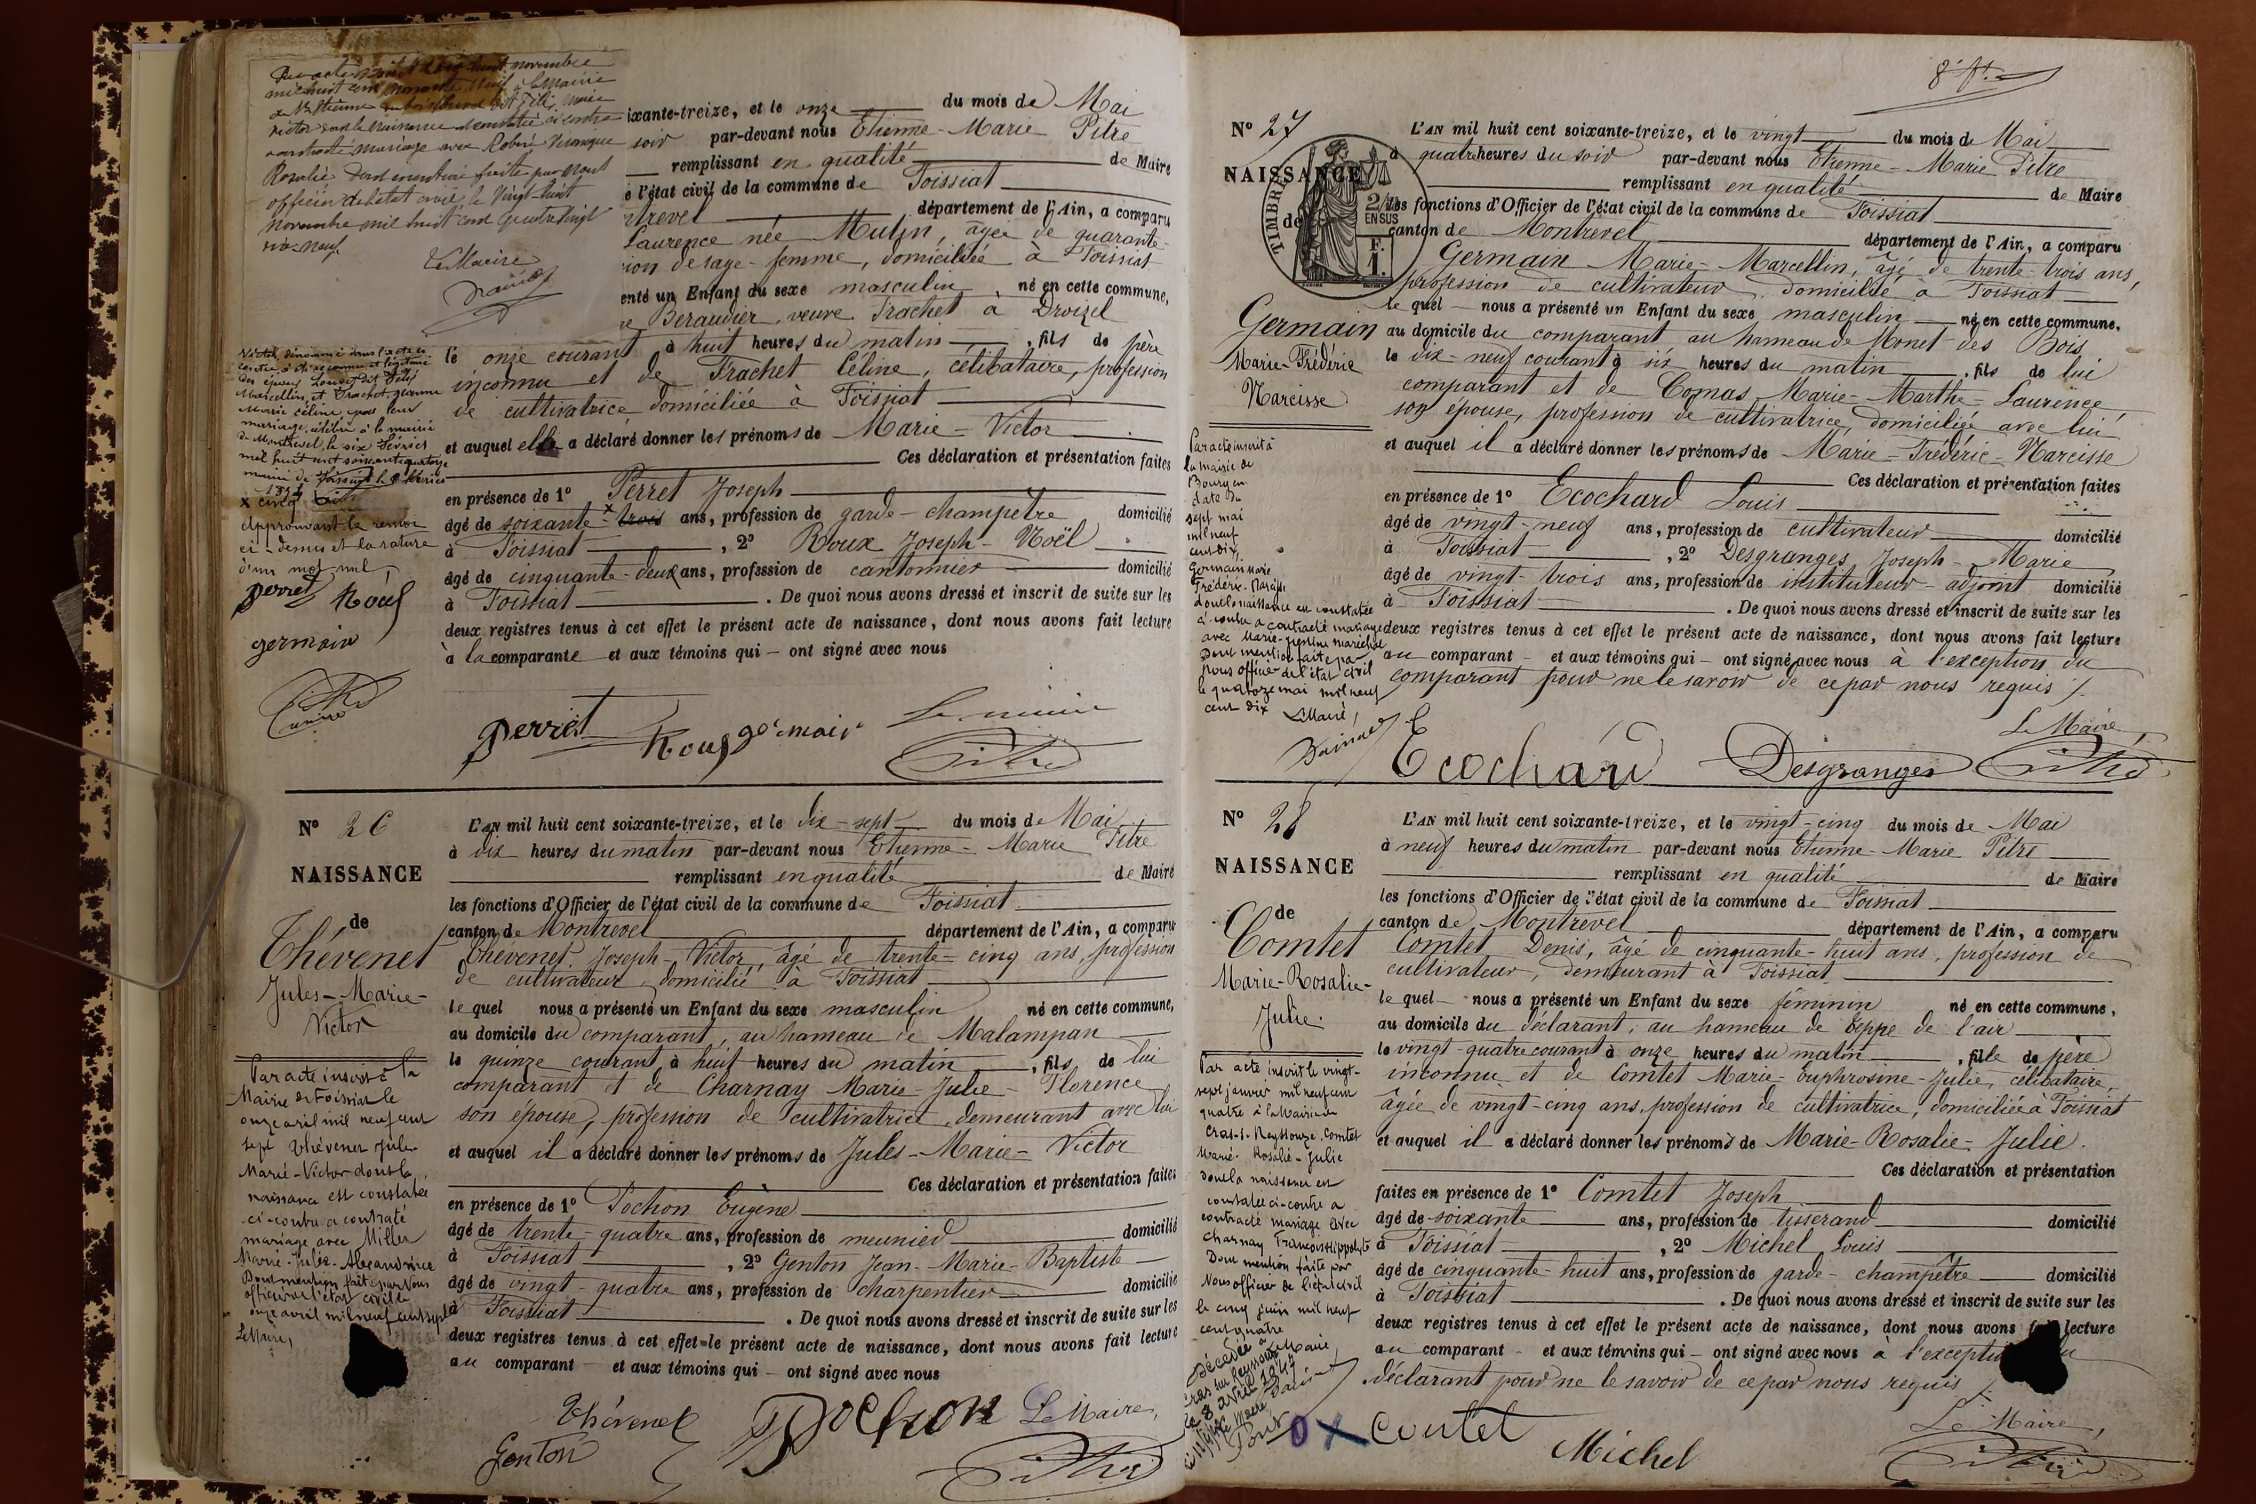 mil huit cent
Victor dont la naissance est constatée ci-contre
contracté mariage avec Robin
Rosalie Dont mention faite par nous
officier de l'état civil le vingt-huit
novembre mil huit cent quatre vingt
dix neuf
Le Maire
ixante-treize, et le onze du mois de Mai
soir par-devant nous Etienne-Marie Pitre
remplissant en qualité de Maire
e l'état civil de la commune de Foissiat
ntrevel département de l'Ain, a comparu
Laurence née Mulin, agée de quarante-
ion de sage-femme, domiciliée à Foissiat
enté un Enfant du sexe masculin, né en cette commune,
e Beraudier, veuve Trachet à Droizel
le onze courant à huit heures du matin, fils de père
inconnu et de Trachet Céline, célibataire, profession
de cultivatrice domiciliée à Foissiat
et auquel elle a déclaré donner les prénoms de Marie-Victor
Ces déclaration et présentation faites
en présence de 1º Perret Joseph
âgé de soixante-x trois ans, profession de garde-champêtre domicilié
à Foissiat, 2º Roux Joseph-Noël
âgé de cinquante-deux ans, profession de cantonnier domicilié
à Foissiat. De quoi nous avons dressé et inscrit de suite sur les
deux registres tenus à cet effet le présent acte de naissance, dont nous avons fait lecture
à la comparante et aux témoins qui ont signé avec nous
Marie céline par leur
mariage célébré à la mairie
de Montrevel, le six Février
mil huit cent soixante quatorze
x cinq
Approuvant le renvoi
ci-dessus et la rature
d'un mot nul
perret Roux
germain
perret Roux germain Le maire
Pitre
Nº 26
NAISSANCE
de
Thévenet
Jules-Marie-
Victor
L'AN mil huit cent soixante-treize, et le dix-sept du mois de Mai
à dix heures du matin par-devant nous Etienne-Marie Pitre
remplissant en qualité de Maire
les fonctions d'Officier de l'état civil de la commune de Foissiat
canton de Montrevel département de l'Ain, a comparu
Thévenet Joseph-Victor, âgé de trente-cinq ans, profession
de cultivateur domicilié à Foissiat
le quel nous a présenté un Enfant du sexe masculin né en cette commune,
au domicile du comparant, au hameau de Malampan
le quinze courant à huit heures du matin, fils de lui
comparant et de Charnay Marie-Julie-Florence
son épouse, profession de cultivatrice, demeurant avec lui
et auquel il a déclaré donner les prénoms de Jules-Marie-Victor
Ces déclaration et présentation faites
en présence de 1º Pochon Eugène
âgé de trente-quatre ans, profession de meunier domicilié
à Foissiat, 2º Genton Jean-Marie-Baptiste
âgé de vingt-quatre ans, profession de charpentier domicilié
à Foissiat. De quoi nous avons dressé et inscrit de suite sur les
deux registres tenus à cet effet le présent acte de naissance, dont nous avons fait lecture
au comparant et aux témoins qui ont signé avec nous
Par acte inscrit à la
Mairie de Foissiat le
onze avril mil neuf cent
sept Thévenet Jules
Marie-Victor dont la
naissance est constatée
ci-contre a contracté
mariage avec Miller
Marie-Julie-Alexandrine
Dont mention faite par Nous
officier de l'état civil le
onze avril mil neuf cent sept
Le Maire,
Thévenet Pochon Le Maire,
Genton Pitre
8e ft.
Nº 27
NAISSANCE
de
TIMBRE
2/10
EN SUS
F.
1.
Germain
Marie-Frédéric
Narcisse
L'AN mil huit cent soixante-treize, et le vingt du mois de Mai
à quatre heures du soir par-devant nous Etienne-Marie Pitre
remplissant en qualité de Maire
les fonctions d'Officier de l'état civil de la commune de Foissiat
canton de Montrevel département de l'Ain, a comparu
Germain Marie-Marcellin, âgé de trente-trois ans,
profession de cultivateur domicilié à Foissiat
le quel nous a présenté un Enfant du sexe masculin né en cette commune,
au domicile du comparant au hameau de Monet des Bois
le dix-neuf courant à six heures du matin, fils de lui
comparant et de Comas Marie-Marthe-Laurence
son épouse, profession de cultivatrice, domiciliée avec lui
et auquel il a déclaré donner les prénoms de Marie-Frédéric-Narcisse
Ces déclaration et présentation faites
en présence de 1º Ecochard Louis
âgé de vingt-neuf ans, profession de cultivateur domicilié
à Foissiat, 2º Desgranges Joseph-Marie
âgé de vingt-trois ans, profession de instituteur-adjoint domicilié
à Foissiat. De quoi nous avons dressé et inscrit de suite sur les
deux registres tenus à cet effet le présent acte de naissance, dont nous avons fait lecture
au comparant et aux témoins qui ont signé avec nous à l'exception du
comparant pour ne le savoir de ce par nous requis
Par acte inscrit à
la mairie de
Bourg en
date du
sept mai
mil neuf
cent dix,
Germain Marie
Frédéric-Narcisse
dont la naissance est constatée
ci-contre a contracté mariage
avec Marie-Jenny Maréchal
Dont mention faite par
Nous officier de l'état civil
le quatorze mai mil neuf
cent dix Le Maire,
Ecochard Desgranges Le Maire,
Pitre
Nº 28
NAISSANCE
de
Comtet
Marie-Rosalie-
Julie.
L'AN mil huit cent soixante-treize, et le vingt-cinq du mois de Mai
à neuf heures du matin par-devant nous Etienne-Marie Pitre
remplissant en qualité de Maire
les fonctions d'Officier de l'état civil de la commune de Foissiat
canton de Montrevel département de l'Ain, a comparu
Comtet Denis, âgé de cinquante-huit ans, profession de
cultivateur, demeurant à Foissiat
le quel nous a présenté un Enfant du sexe féminin né en cette commune,
au domicile du déclarant, au hameau de Teppe de l'air
le vingt-quatre courant à onze heures du matin, fille de père
inconnu et de Comtet Marie-Euphrosine-Julie, célibataire,
âgée de vingt-cinq ans, profession de cultivatrice, domiciliée à Foissiat
et auquel il a déclaré donner les prénoms de Marie-Rosalie-Julie.
Ces déclaration et présentation
faites en présence de 1º Comtet Joseph
âgé de soixante ans, profession de tisserand domicilié
à Foissiat, 2º Michel Louis
âgé de cinquante-huit ans, profession de garde-champêtre domicilié
à Foissiat. De quoi nous avons dressé et inscrit de suite sur les
deux registres tenus à cet effet le présent acte de naissance, dont nous avons lecture
au comparant et aux témoins qui ont signé avec nous à
déclarant pour ne le savoir de ce par nous requis
Par acte inscrit le vingt-
sept janvier mil neuf cent
quatre à la Mairie de
Cras-s-Reyssouze, Comtet
Marie-Rosalie-Julie
dont la naissance est
constatée ci-contre a
contracté mariage avec
Charnay François Hippolyte
Dont mention faite par
Nous officier de l'état civil
le cinq juin mil neuf
cent quatre
Le Maire,
Décédée à
Cras sur Reyssouze
le 8 avril
Comtet Michel Le Maire,
Pitre